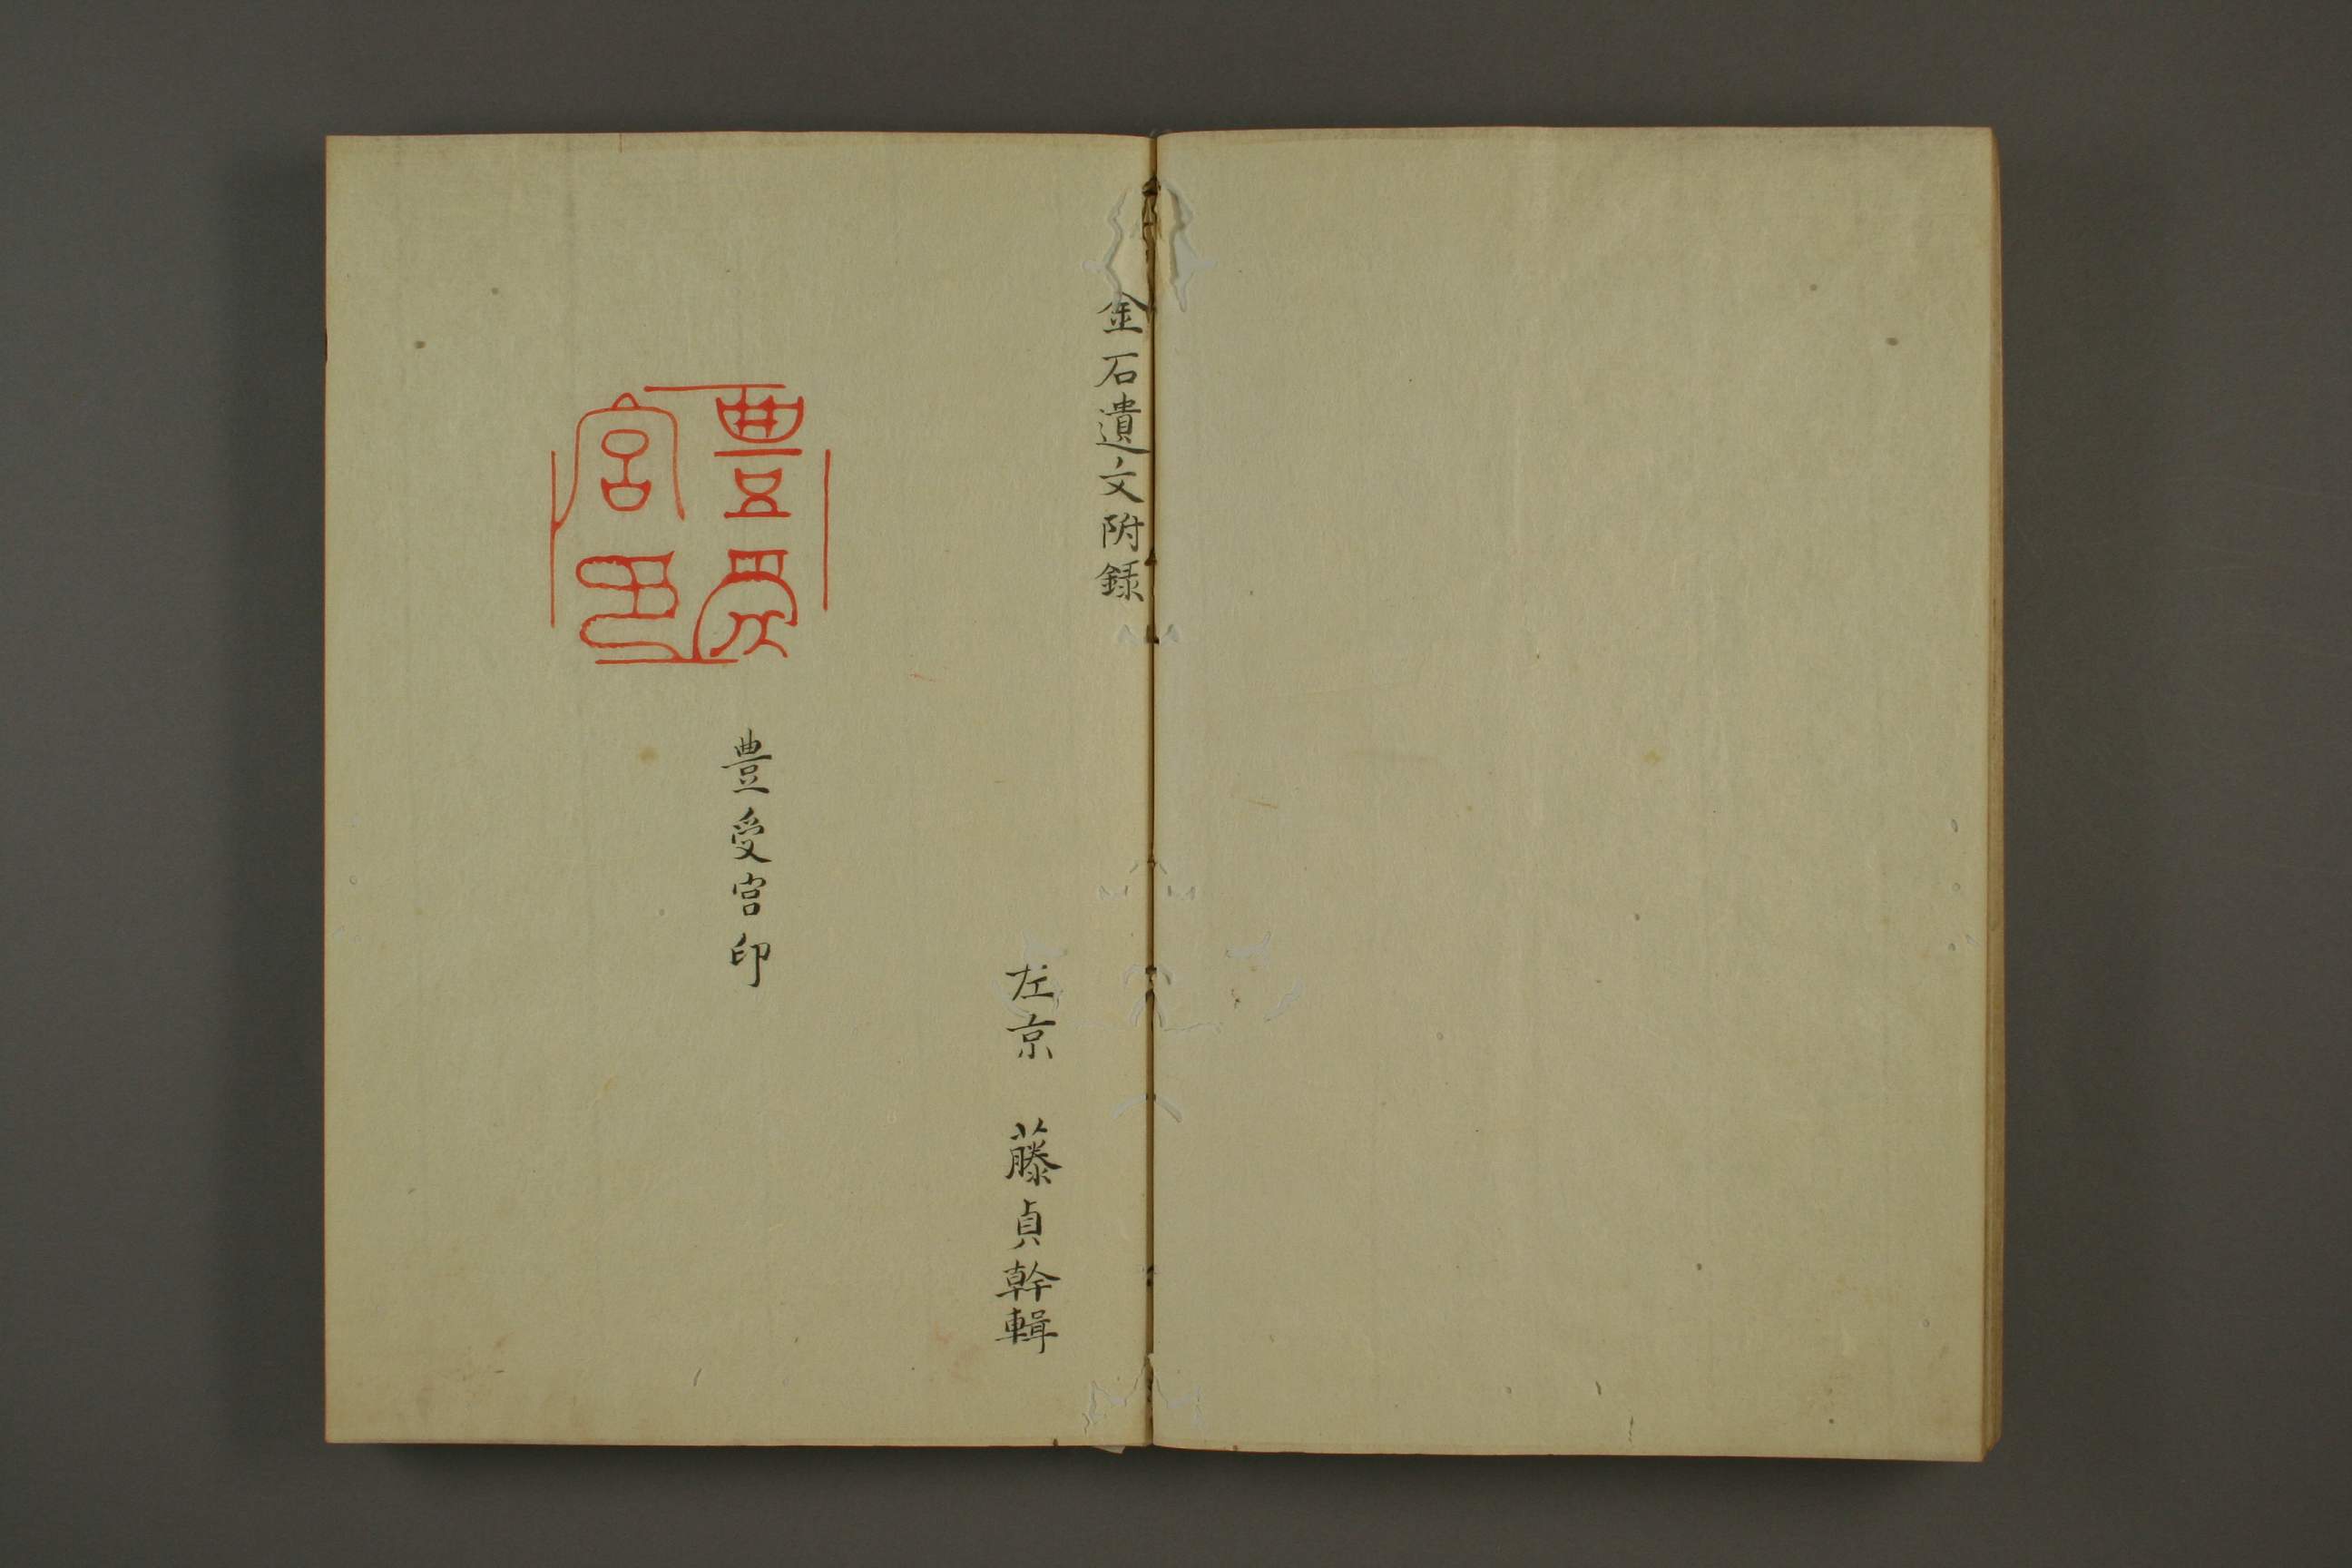 金石遺文附録
左京　藤貞幹輯
豊受宮印
豊受宮印